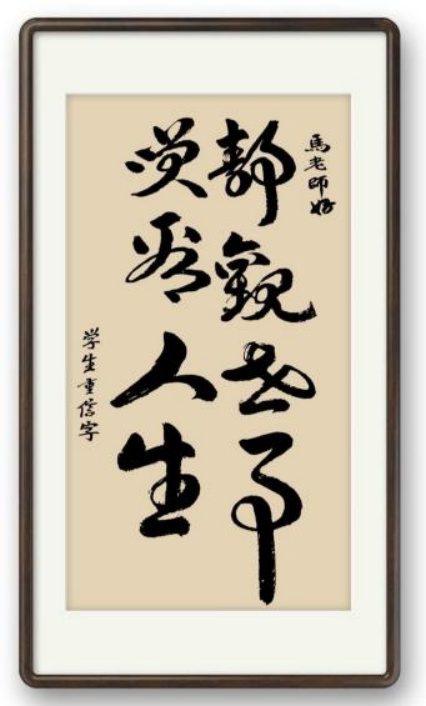 馬老師好
靜觀世事
笑看人生
学生重信字